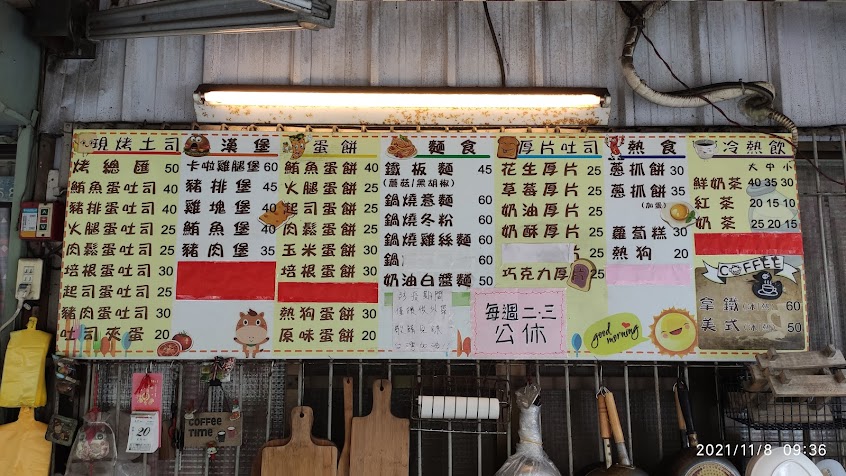 碳烤土司
烤總匯 50
鮪魚蛋吐司 40
豬排蛋吐司 40
火腿蛋吐司
肉鬆蛋吐司
培根蛋吐司 30
起司蛋吐司
豬肉蛋吐司
吐司夾蛋 20
漢堡
卡啦雞腿堡 60
豬排堡 45
雞塊堡 40
鮪魚堡 40
豬肉堡 35
蛋餅
鮪魚蛋餅 40
火腿蛋餅
起司蛋餅
肉鬆蛋餅
玉米蛋餅 30
培根蛋餅 30
熱狗蛋餅 30
原味蛋餅 20
麵食
鐵板麵 45
(蘑菇/黑胡椒)
鍋燒意麵 60
鍋燒冬粉 60
鍋燒雞絲麵 60
鍋 60
奶油白醬麵 50
厚片吐司
花生厚片 25
草莓厚片 25
奶油厚片 25
奶酥厚片 25
25
巧克力厚 25
每週二.三
公休
熱食
蔥抓餅 30
蔥抓餅 35
(加蛋)
蘿蔔糕 30
熱狗 20
good morning
冷熱飲
大 中 小
鮮奶茶 40 35 30
紅茶 20 15 10
奶茶 25 20 15
COFFEE
拿鐵 60
美式 50
COFFEE
TIME
20
2021/11/8 09:36